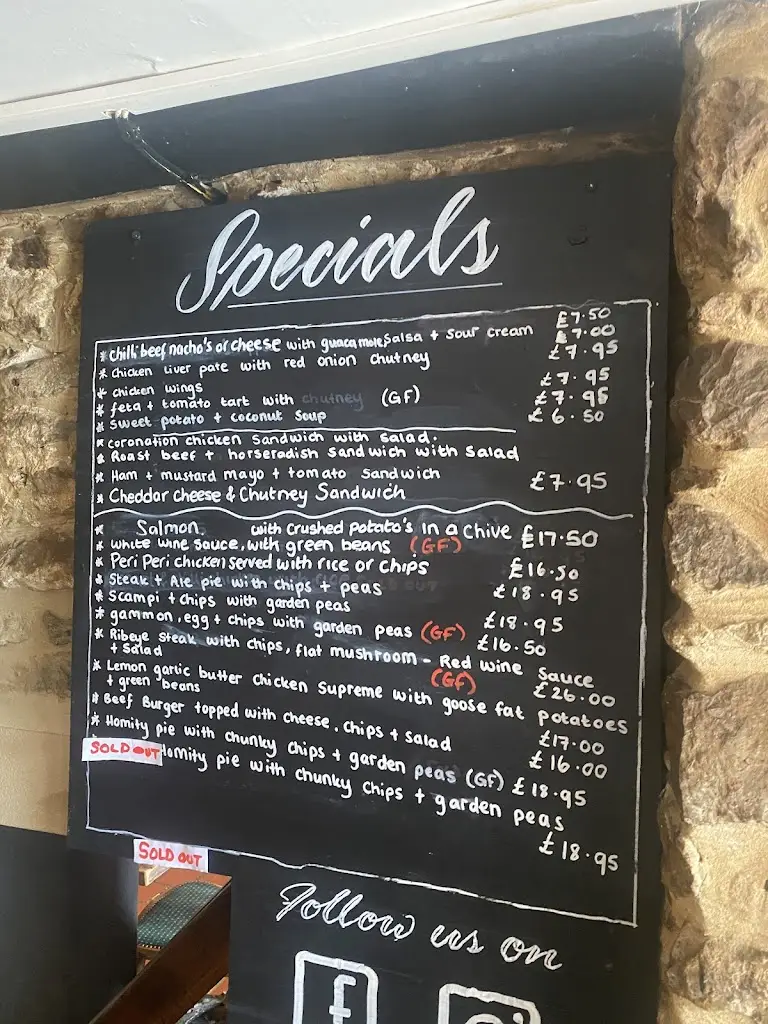 Specials
* chilli beef nacho's or cheese with guacamole, salsa + sour cream £7.50 £7.00
* chicken liver pate with red onion chutney £7.95
* chicken wings £7.95
* feta + tomato tart with chutney (GF) £7.95
* Sweet potato + coconut soup £6.50
* coronation chicken sandwich with salad.
* Roast beef + horseradish sandwich with salad
* Ham + mustard mayo + tomato sandwich £7.95
* Cheddar cheese & Chutney Sandwich
* Salmon with crushed potato's in a chive £17.50
* white wine sauce, with green beans (GF)
* Peri Peri chicken served with rice or chips £16.50
* Steak + Ale pie with chips + peas £18.95
* Scampi + chips with garden peas £18.95
* gammon, egg + chips with garden peas (GF) £16.50
* Ribeye steak with chips, flat mushroom - Red wine sauce
+ salad (GF) £26.00
* Lemon garlic butter chicken supreme with goose fat potatoes
+ green beans £17.00
* Beef Burger topped with cheese, chips + salad £16.00
* Homity pie with chunky chips + garden peas (GF) £18.95
SOLD OUT Homity pie with chunky chips + garden peas
£18.95
SOLD OUT
Follow us on
f